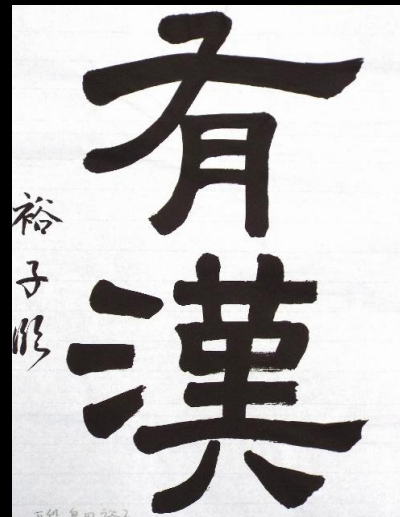 有漢
裕子臨